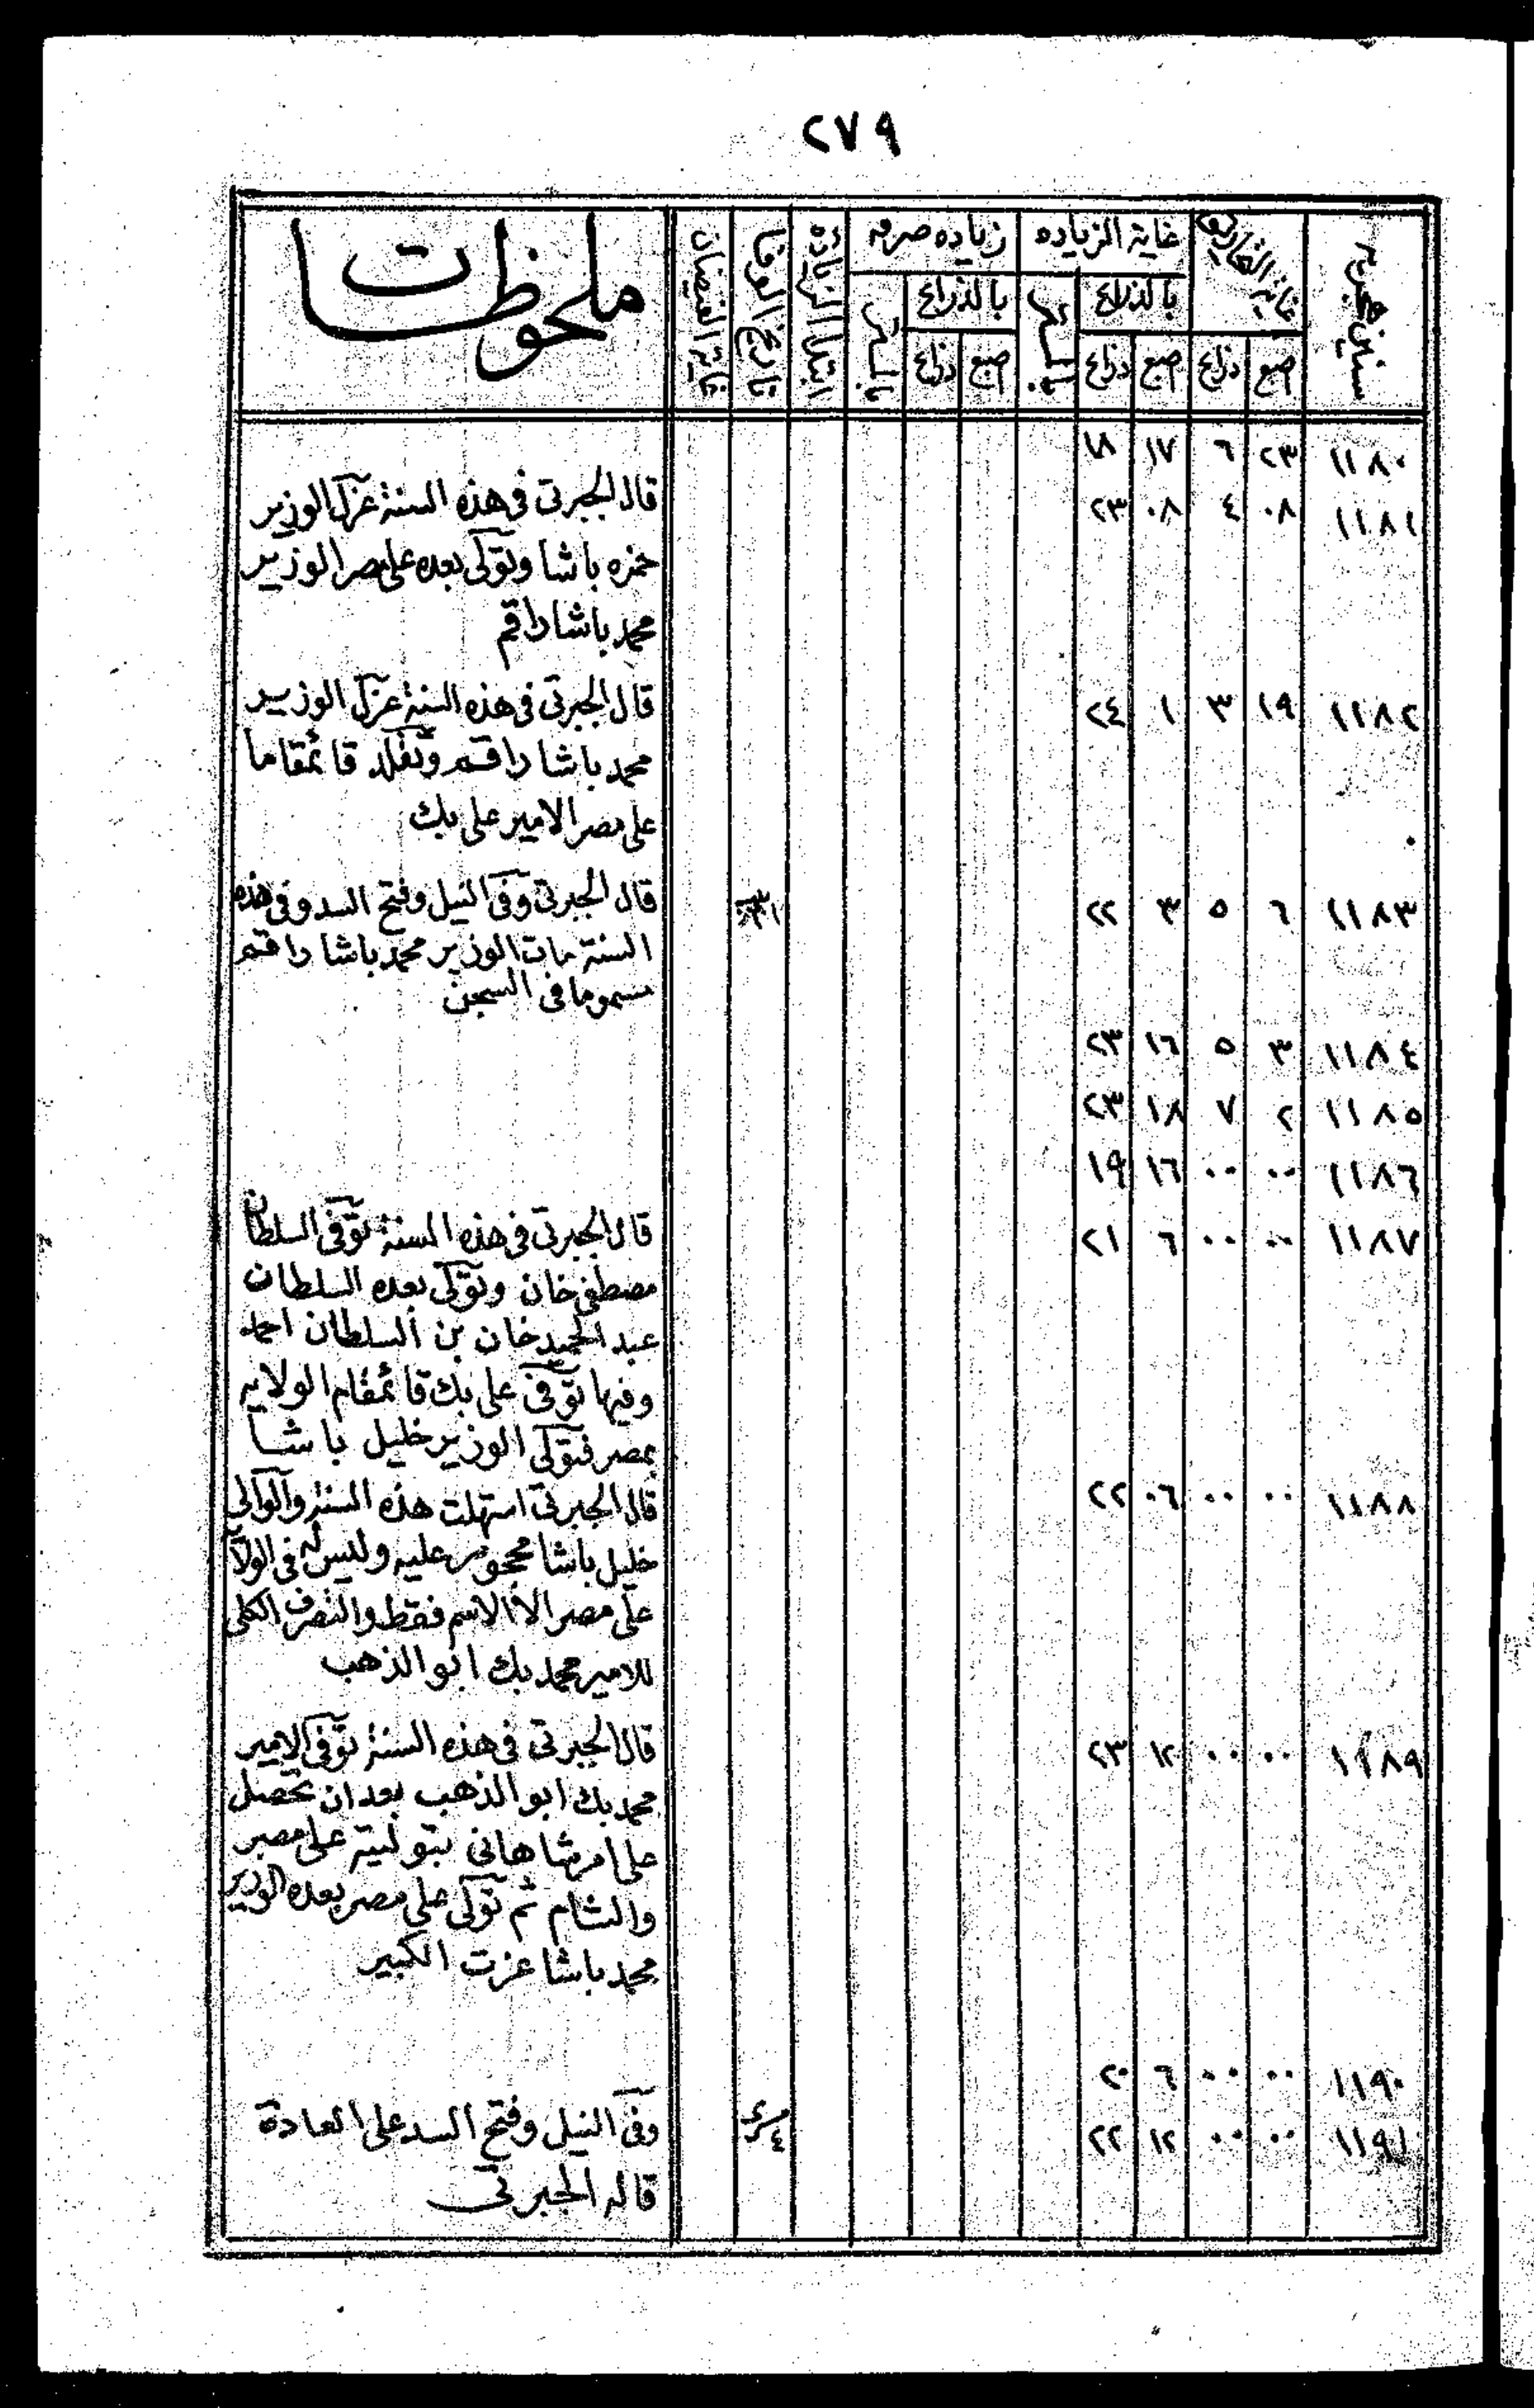 ٢٧٩
سنين هجريه
غاية التحاريق
غاية الزياده
زياده صرفه
ابتداء الزيادة
تاريخ الوفا
غاية الفيضان
ملحوظات
بالذراع
بالذراع
صبع ذراع صبع ذراع صبع ذراع
١١٨٠ ٢٣ ٦ ١٧ ١٨
١١٨١ ٠٨ ٤ ٠٨ ٢٣
قال الجبرتى فى هذه السنة عزل الوزير
حمزه باشا وتولى بعده على مصر الوزير
محمد باشا راقم
١١٨٢ ١٩ ٣ ١ ٢٤
قال الجبرتى فى هذه السنة عزل الوزير
محمد باشا راقم وتقلد قائمقاما
على مصر الامير على بك
١١٨٣ ٦ ٥ ٣ ٢٢
قال الجبرتى وفى النيل وفتح السد وفى هذه
السنة مات الوزير محمد باشا راقم
مسموما فى السجن
١١٨٤ ٣ ٥ ١٦ ٢٣
١١٨٥ ٢ ٧ ١٨ ٢٣
١١٨٦ ٠٠ ٠٠ ١٦ ١٩
١١٨٧ ٠٠ ٠٠ ٦ ٢١
قال الجبرتى فى هذه السنة توفى السلطان
مصطفى خان وتولى بعده السلطان
عبد الحميد خان بن السلطان احمد
وفيها توفى على بك قائمقام الولايه
بمصر فتولى الوزير خليل باشا
١١٨٨ ٠٠ ٠٠ ٠٦ ٢٢
قال الجبرتى استهلت هذه السنة والوالى
خليل باشا محجور عليه وليس له فى الولاية
على مصر الا الاسم فقط والتصرف الكلى
للامير محمد بك ابو الذهب
١١٨٩ ٠٠ ٠٠ ١٢ ٢٣
قال الجبرتى فى هذه السنة توفى الامير
محمد بك ابو الذهب بعد ان تحصل
على امر شاهانى بتوليته على مصر
والشام ثم تولى على مصر بعده الوزير
محمد باشا عزت الكبير
١١٩٠ ٠٠ ٠٠ ٦ ٢٠
١١٩١ ٠٠ ٠٠ ١٢ ٢٢
وفى النيل وفتح السد على العادة
قاله الجبرتى